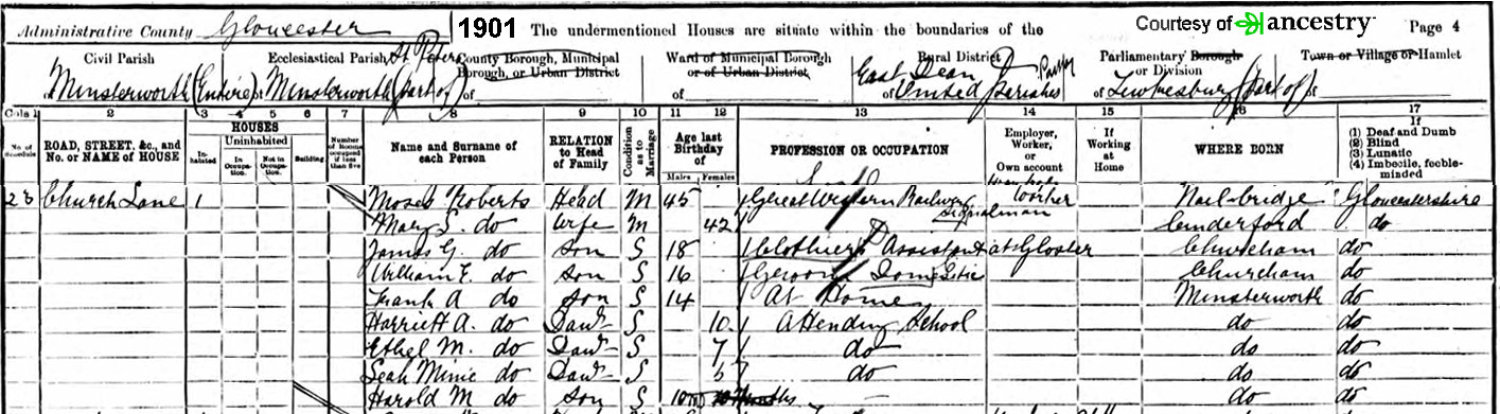 Administrative County Gloucester 1901 The undermentioned Houses are situate within the boundaries of the Courtesy of ancestry Page 4
Civil Parish Ecclesiastical Parish St Peters County Borough, Municipal Borough, or Urban District Ward of Municipal Borough or of Urban District Rural District Parliamentary Borough or Division Town or Village or Hamlet
of Minsterworth (Entire) of Minsterworth (part of) of of East Dean of United Parishes of Tewkesbury (part of) of
Cols 1 2 3 4 5 6 7 8 9 10 11 12 13 14 15 16 17
No. of Schedule ROAD, STREET, &c., and No. or NAME of HOUSE HOUSES Inhabited Uninhabited In Occupation. Not in Occupation. Building Number of Rooms occupied if less than five Name and Surname of each Person RELATION to Head of Family Condition as to Marriage Age last Birthday of Males Females PROFESSION OR OCCUPATION Employer, Worker, or Own account If Working at Home WHERE BORN If (1) Deaf and Dumb (2) Blind (3) Lunatic (4) Imbecile, feeble-minded
23 Church Lane 1 Moses Roberts Head M 45 Great Western Railway Signalman Worker Nail-bridge Gloucestershire
Mary S. do Wife M 42 Cinderford do
James G. do Son S 18 Clothiers Assistant at Gloster Churcham do
William E. do Son S 16 Groom Domestic Churcham do
Frank A do Son S 14 At Home Minsterworth do
Harriett A. do Daur S 10 Attending School do do
Ethel M. do Daur S 7 do do do
Leah Minie do Daur S 5 do do do
Harold M do Son S 10 Months do do